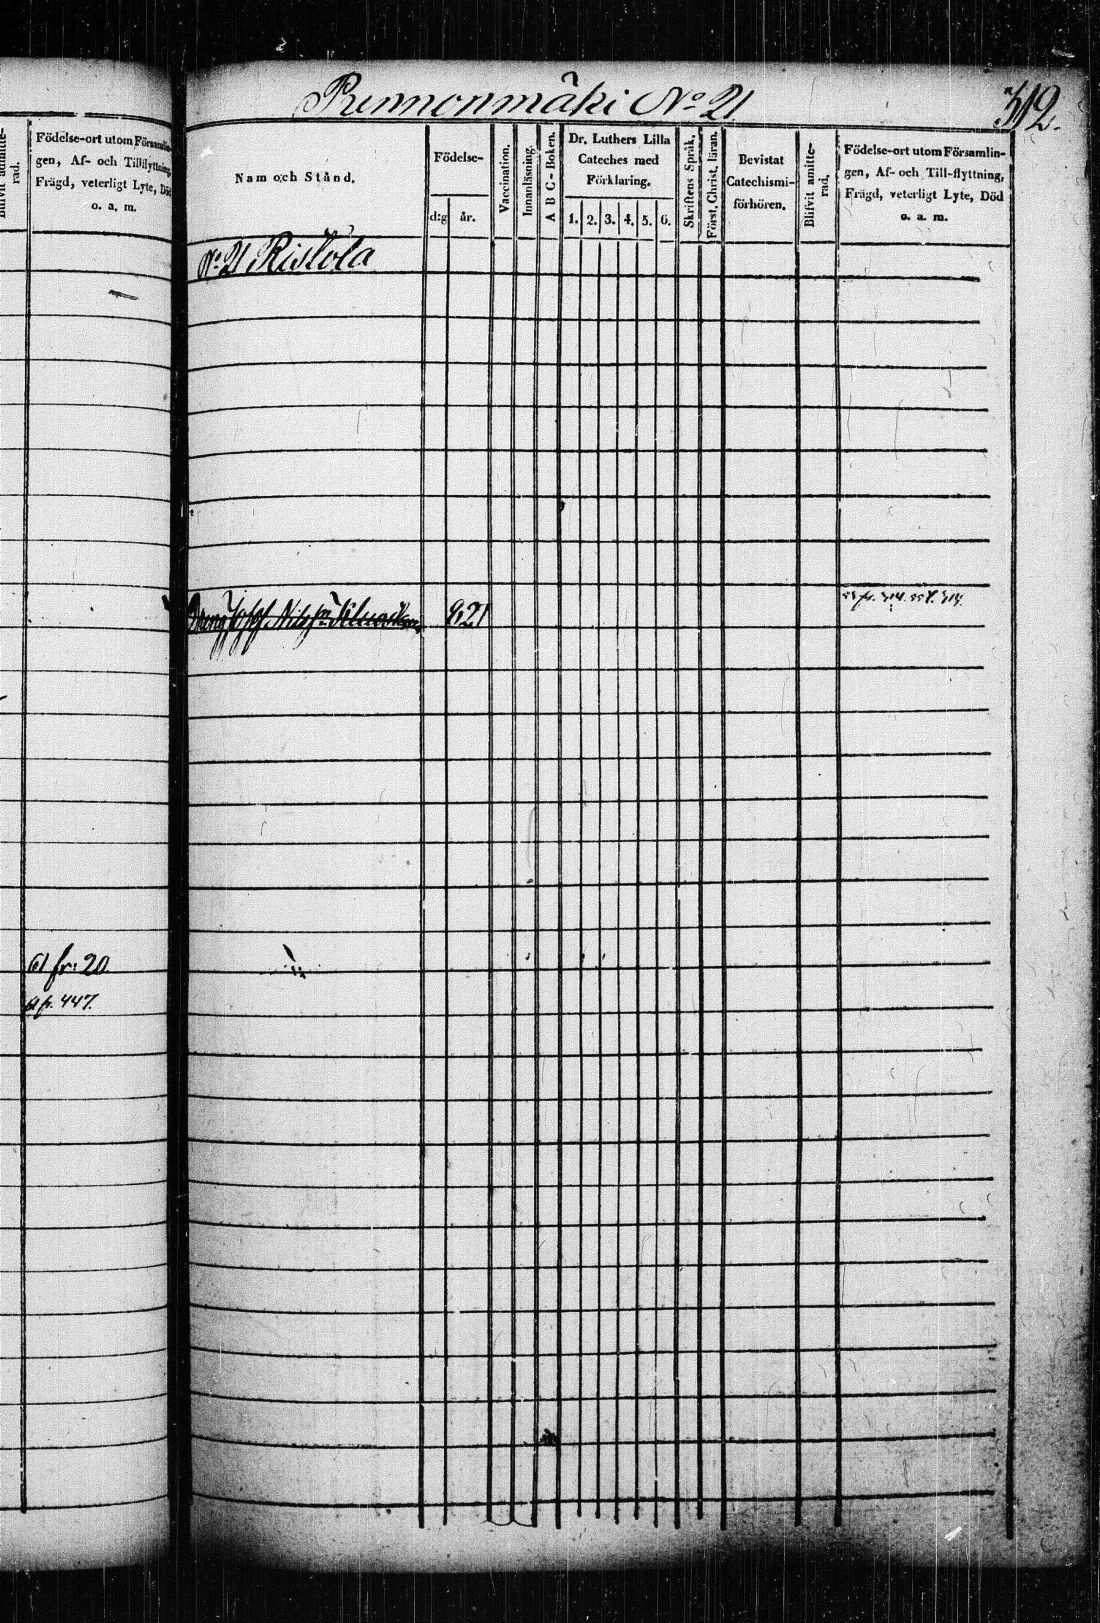 Blifvit admitte-
rad.
Födelse-ort utom Församlin-
gen, Af- och Tillflyttning,
Frägd, veterligt Lyte, Död
o. a. m.
61 fr. 20
61 fr. 447.
Rennonmäki No 21
312.
Nam och Stånd.
Födelse-
d:g
år.
Vaccination.
Innanläsning.
A B C-Boken.
Dr. Luthers Lilla
Cateches med
Förklaring.
1. 2. 3. 4. 5. 6.
Skriftens Språk.
Först. Christ. läran.
Bevistat
Catechismi-
förhören.
Blifvit amitte-
rad.
Födelse-ort utom Församlin-
gen, Af- och Till-flyttning,
Frägd, veterligt Lyte, Död
o. a. m.
No 21 Ristola
Dräng Josef Nilsson
821
fr. 314. 314.